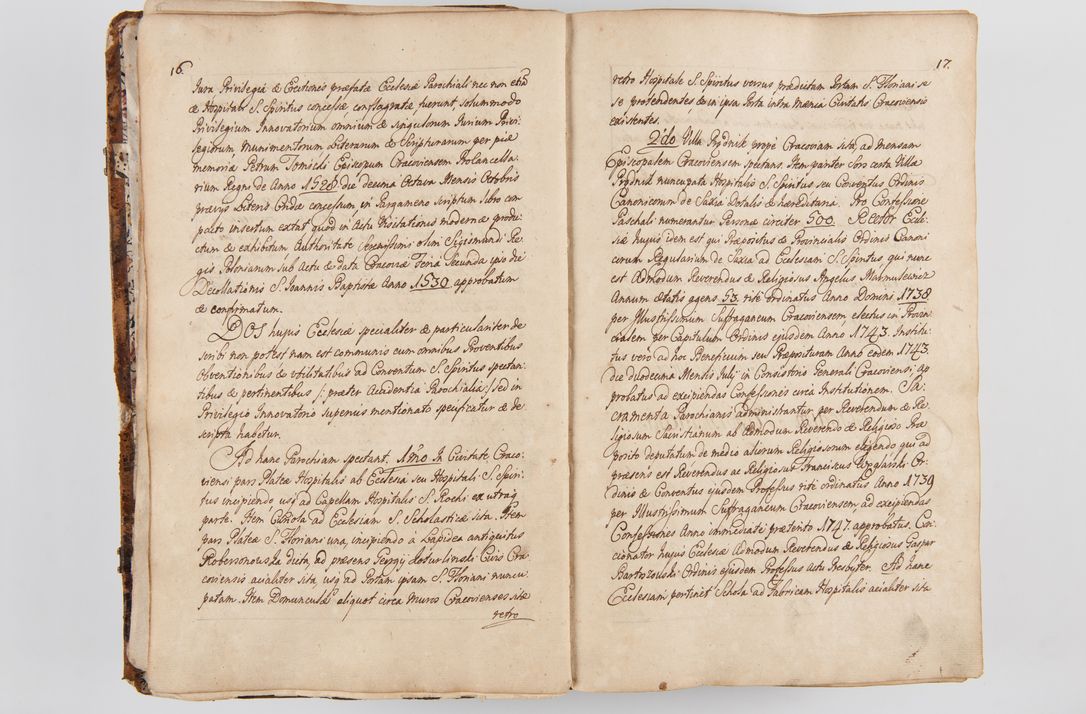 16.
Jura Privilegia & Erectiones præfatæ Ecclesiæ Parochiali nec non etia
& Hospitali S. Spiritus concessæ conflagratæ fuerunt solummodo
Privilegium Innovatorium omnium & singulorum Jurium Privi-
legiorum Munimentorum Literarum & Scripturarum per piæ
memoriæ Petrum Tomicki Episcopum Cracoviensem Procancella-
rium Regni de Anno 1528 die decima Octava Mensis Octobris
prævijs Literis concessum in Pargameno scriptum Libro com
pacto insertum extat quod in Actu Visitationis modernæ produ-
ctum & exhibitum Authoritate Serenissimi olim Sigismundi Re-
gis Poloniarum sub Actu & data Cracoviæ Feria Secunda ipso die
Decollationis S. Joannis Baptistæ Anno 1530 approbatum
& confirmatum.
DOS hujus Ecclesiæ specialiter & particulariter de
scribi non potest nam est communis cum omnibus Proventibus
Obventionibus & Utilitatibus ad Conventum S. Spiritus spectan-
tibus & pertinentibus /: præter Accidentia Parochialia :/ sed in
Privilegio Innovatorio superius mentionato specificatur & de
scripta habetur.
Ad hanc Parochiam spectant. 1mo In Civitate Craco-
viensi pars Plateæ Hospitalis ab Ecclesia seu Hospitali S. Spiri-
tus incipiendo usq ad Capellam Hospitalis S. Rochi ex utraq
parte. Item Curiola ad Ecclesiam S. Scholasticæ sita. Item
pars Plateæ S. Floriani una, incipiendo à Lapidea antiquitus
Robersonowska dicta, ad præsens Georgij Civis Cra-
coviensis acialiter sita, usq ad Portam ipsam S. Floriani nuncu-
patam. Item Domunculæ aliquot circa muros Cracovienses sitæ
retro
17.
retro Hospitale S. Spiritus versus prædictam Portam S. Floriani se
se protendentes & in ipsa Porta intra mænia Civitatis Cracoviensis
existentes.
2do Villa Prądnik prope Cracoviam sita, ad mensam
Episcopalem Cracoviensem spectans. Item pariter Sors certa Villa
Prądnik nuncupata Hospitalis S. Spiritus seu Conventus Ordinis
Canonicorum de Saxia Dotalis & hæreditaria. Pro Confessione
Paschali numerantur Personæ circiter 500. Rector Eccle-
siæ hujus idem est qui Præpositus & Provincialis Ordinis Canoni
corum Regularium de Saxia ad Ecclesiam S. Spiritus, qui nunc
est Admodum Reverendus & Religiosus Angelus Marmulewicz
Annum Ætatis agens 53. rite Ordinatus Anno Domini 1738
per Illustrissimum Suffraganeum Cracoviensem electus in Provin
cialem per Capitulum Ordinis ejusdem Anno 1743. Institu-
tus verò ad hoc Beneficium seu Præposituram Anno eodem 1743.
die duodecima Mensis Julij in Consistorio Generali Cracoviensi, ap
probatus ad excipiendas Confessiones circa Institutionem. Sa-
cramenta Parochianis administrantur per Reverendum & Re-
ligiosum Sacristianum ab Admodum Reverendo & Religioso Præ
posito deputatum de medio aliorum Religiosorum eligendo qui ad
præsens est Reverendus ac Religiosus Franciscus Or-
dinis & Conventus ejusdem Professus rite ordinatus Anno 1739
per Illustrissimum Suffraganeum Cracoviensem, ad excipiendas
Confessiones Anno immediate præterito 1747. approbatus. Con-
cionator hujus Ecclesiæ Admodum Reverendus & Religiosus Gaspar
Bartoszowski Ordinis ejusdem Professus actu Presbyter. Ad hanc
Ecclesiam pertinet Schola ad Fabricam Hospitalis acialiter sita